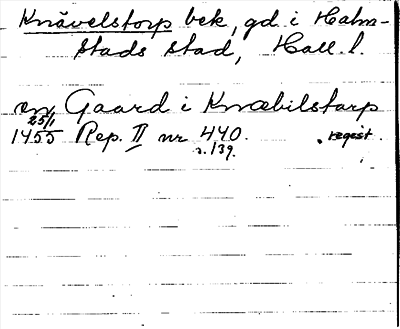 Knävelstorp bek, gd. i Halm-
stads stad, Hall. l.
en Gaard i Knæbilstarp
25/1
1455 Rep. II nr 440. regist.
s. 139.